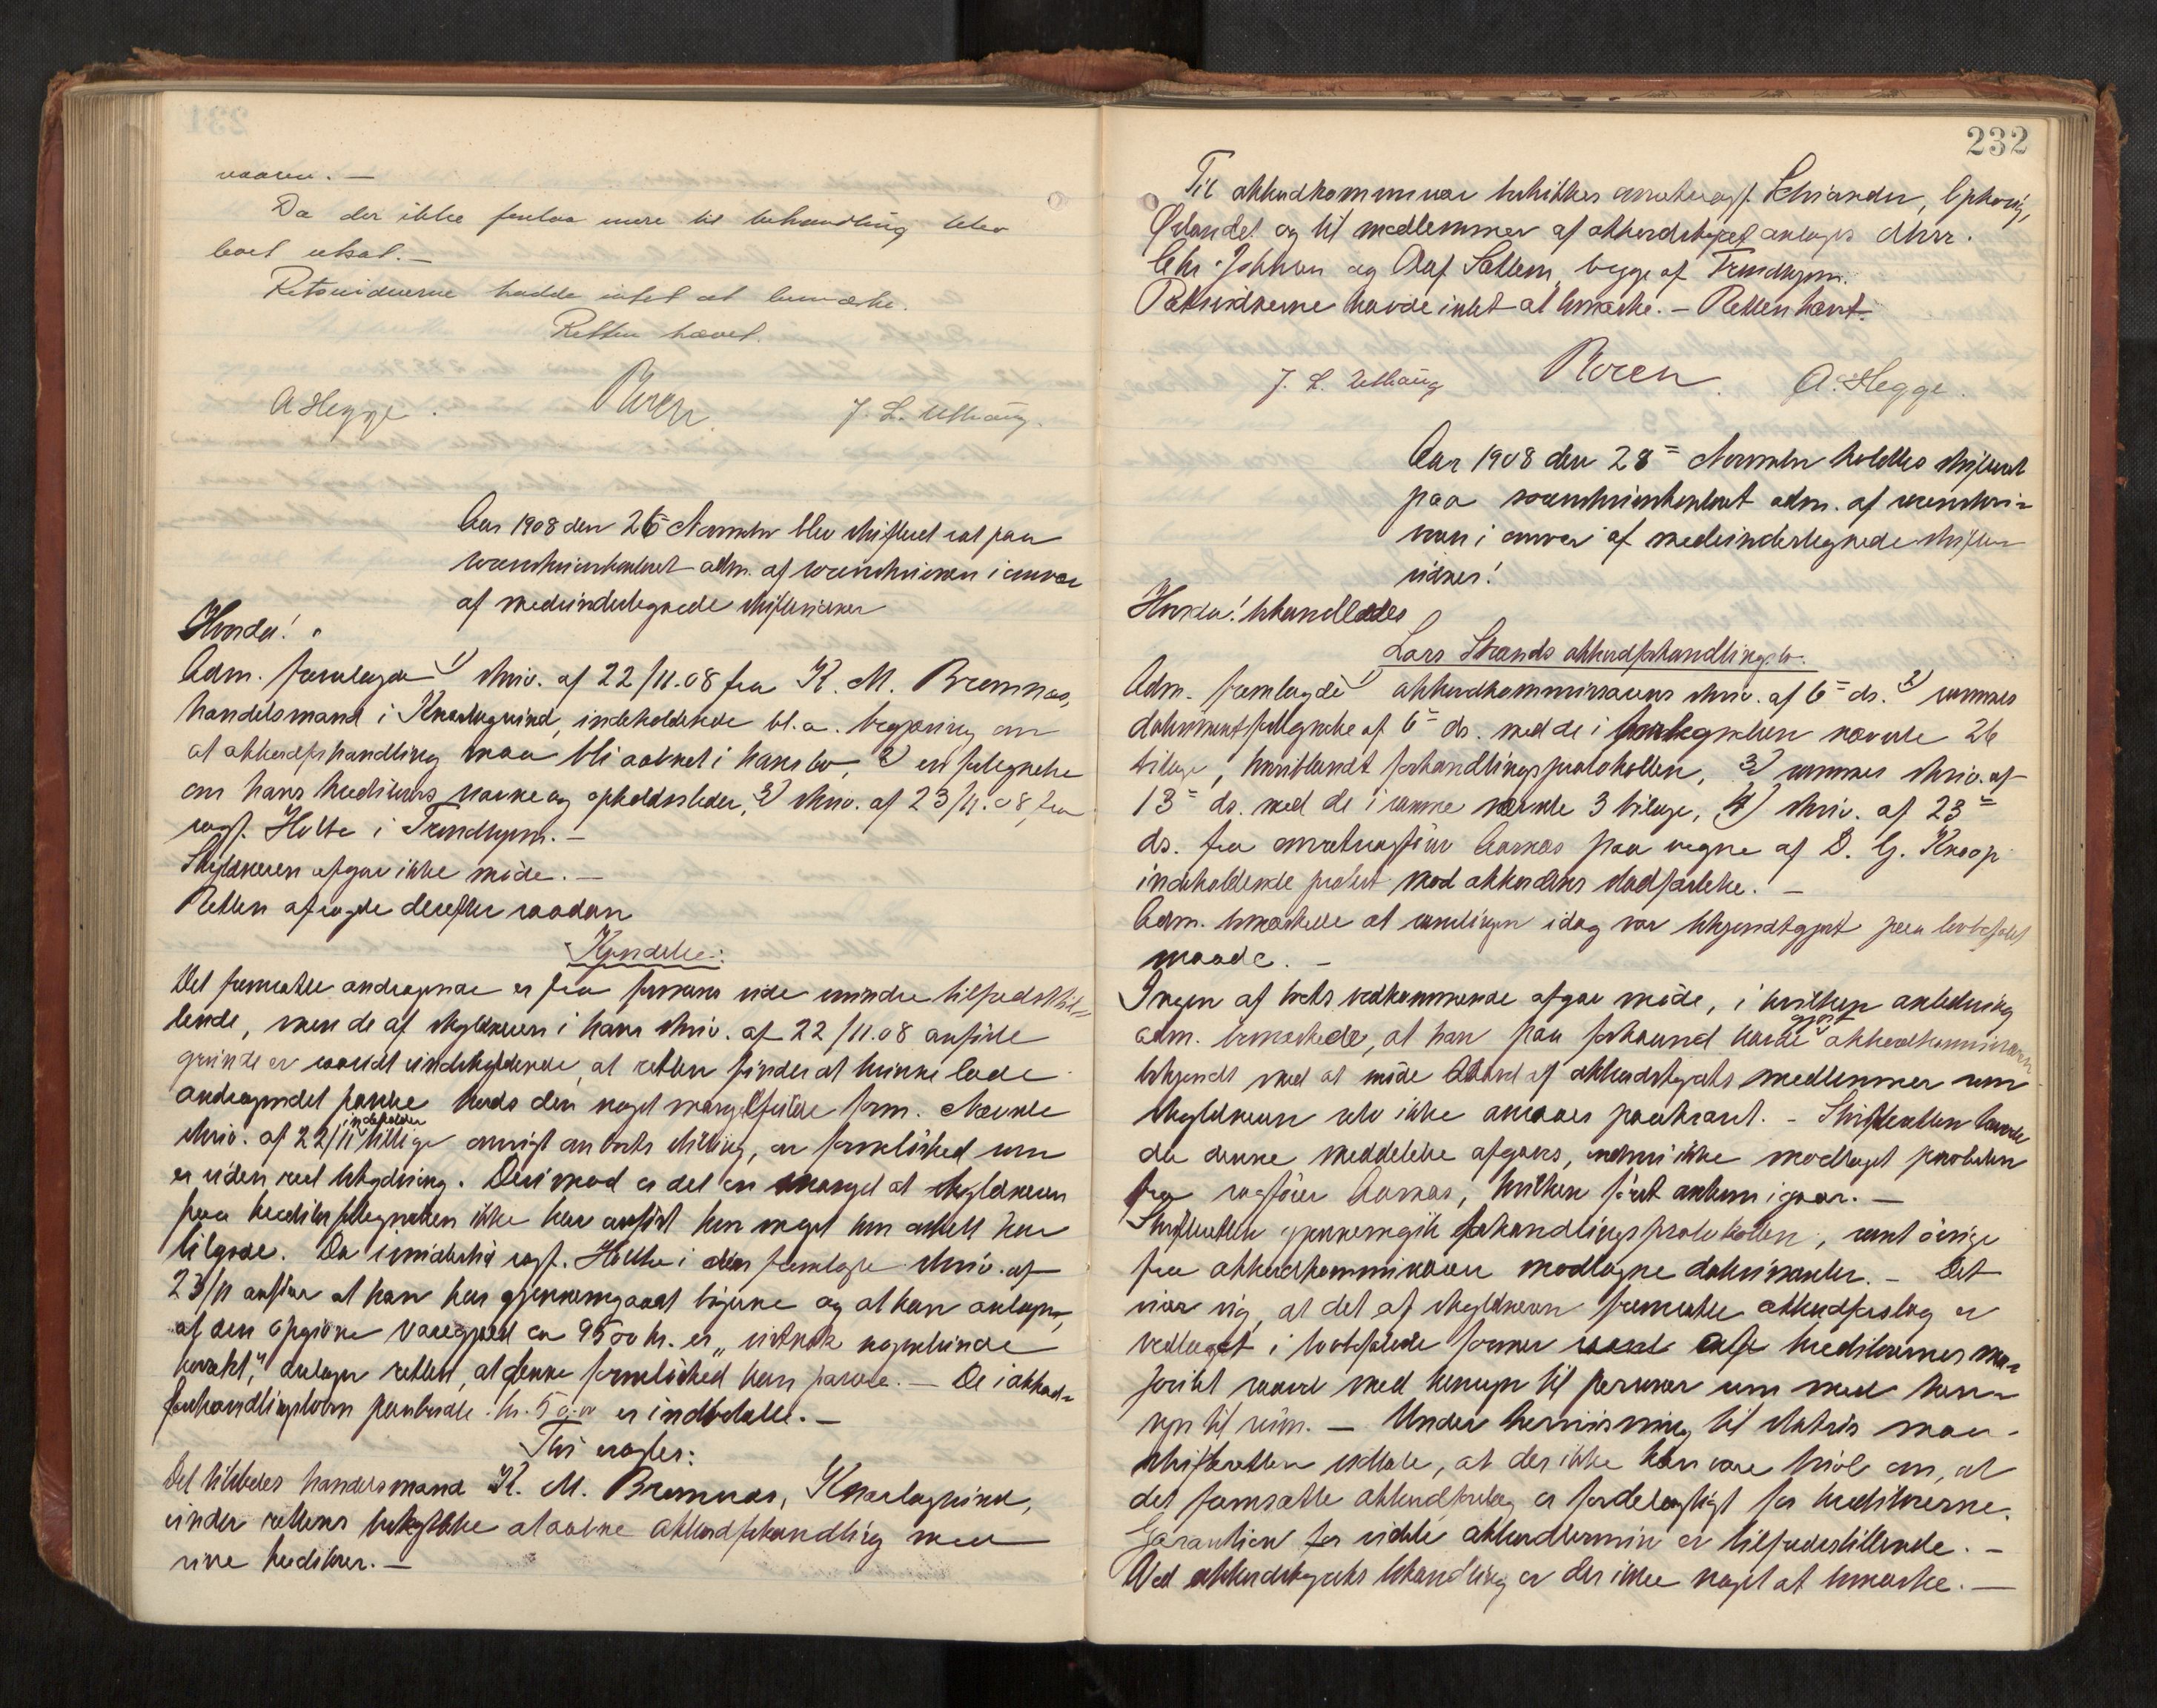 vaaren. —
Da der ikke forelaa mere til behandling blev
boet utsat. —
Retsvidnerne hadde intet at bemærke.
Retten hævet.
A Hegge. Roren J. L. Uthaug.
Aar 1908 den 26= November blev skifteret sat paa
sorenskriverkontoret adm. af sorenskriveren i anvær
af medundertegnede skiftevidner
Hvorda!
Adm. fremlagde 1) skriv. af 22/11.08 fra K. M. Bremnæs,
handelsmand i Knarlagsund, indeholdende bl. a. begjæring om
at akkordforhandling maa bli aabnet i hans bo, 2) en fortegnelse
om hans kreditorers navne og opholdssteder, 3) skriv. af 23/11.08 fra
sagf. Holte i Trondhjem. —
Skyldneren afgav ikke møde. —
Retten afsagde derefter saadan
Kjendelse:
Det fremsatte andragende er fra formens side mindre tilfredsstil=
lende, men de af skyldneren i hans skriv. af 22/11.08 anførte
grunde er saavidt undskyldende, at retten finder at kunne lade
andragendet passere trods den noget mangelfulde form. Nævnte
skriv. af 22/11 indeholder tillige angst an boets stilling, en formlöshed som
er uden reel betydning. Derimod er det en mangel at skyldneren
paa kreditorfortegnelsen ikke har anført hvor meget hver enkelt har
tilgode. Da imidlertid sagf. Holte i den fremlagte skriv. af
23/11 anfører at han har gjennemgaaet bøgerne og at han antager,
at den opgivne varegjæld ca 9500 kr. er „vistnok nogenlunde
korrekt," antager retten, at denne formløshed kan passere. — De i akkord-
forhandlingsloven paabudte kr. 50.00 er indbetalte. —
Thi eragtes:
Det tilstedes handelsmand K. M. Bremnæs, Knarlagsund,
under rettens beskyttelse at aabne akkordforhandling med
sine kreditorer. —
232
Til akkordkommissær beskikkes overretssagf. Schiander, Ophaug,
Ørlandet og til medlemmer af akkordstyret antages dhrr.
Chr. Johnsen og Olaf Sættem, begge af Trondhjem.
Retsvidnerne havde intet at bemærke. — Retten hævet.
J. L. Uthaug Roren. A. Hegge.
Aar 1908 den 28= November holdtes skifteret
paa sorenskriverkontoret adm. af sorenskri-
veren i anvær af medundertegnede skifte-
vidner!
Hvorda! behandledes
Lars Strands akkordforhandlingsbo.
Adm. fremlagde 1) akkordkommissærens skriv. af 6= ds. 2) sammes
dokumentfortegnelse af 6= ds. med de i fortegnelsen nævnte 26
bilage, hvoriblandt forhandlingsprotokollen, 3) sammes skriv. af
13= ds. med de i samme nævnte 3 bilage, 4) skriv. af 23=
ds. fra overretssagfører Aarnæs paa vegne af D. G. Knoop
indeholdende protest mod akkordens stadfæstelse. —
Adm. bemærkede at samlingen idag var bekjendtgjort paa lovbefalet
maade. —
Ingen af boets vedkommende afgav møde, i hvilken anledning
adm. bemærkede, at han paa forhaand havde gjort akkordkommissæren
bekjendt med at møde saavel af akkordstyrets medlemmer som
skyldneren selv ikke ansaaes paakrævet. — Skifteretten havde
da denne meddelelse afgaves, endnu ikke modtaget protesten
fra sagfører Aarnæs, hvilken først ankom igaar. —
Skifteretten gjennemgik forhandlingsprotokollen, samt øvrige
fra akkordkommissæren modtagne dokumenter. — Det
viser sig, at det af skyldneren fremsatte akkordforslag er
vedtaget i lovbefalede former af kreditorernes ma=
joritet saavel med hensyn til personer som med hen-
syn til sum. — Under henvisning til status maa
skifteretten udtale, at der ikke kan være tvivl om, at
det fremsatte akkordforslag er fordelagtigt for kreditorerne.
Garantien for sidste akkordtermin er tilfredsstillende. —
Ved akkordstyrets behandling er der ikke noget at bemærke. —